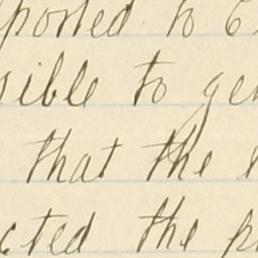 ported to
sible to ge
that the
cted the p